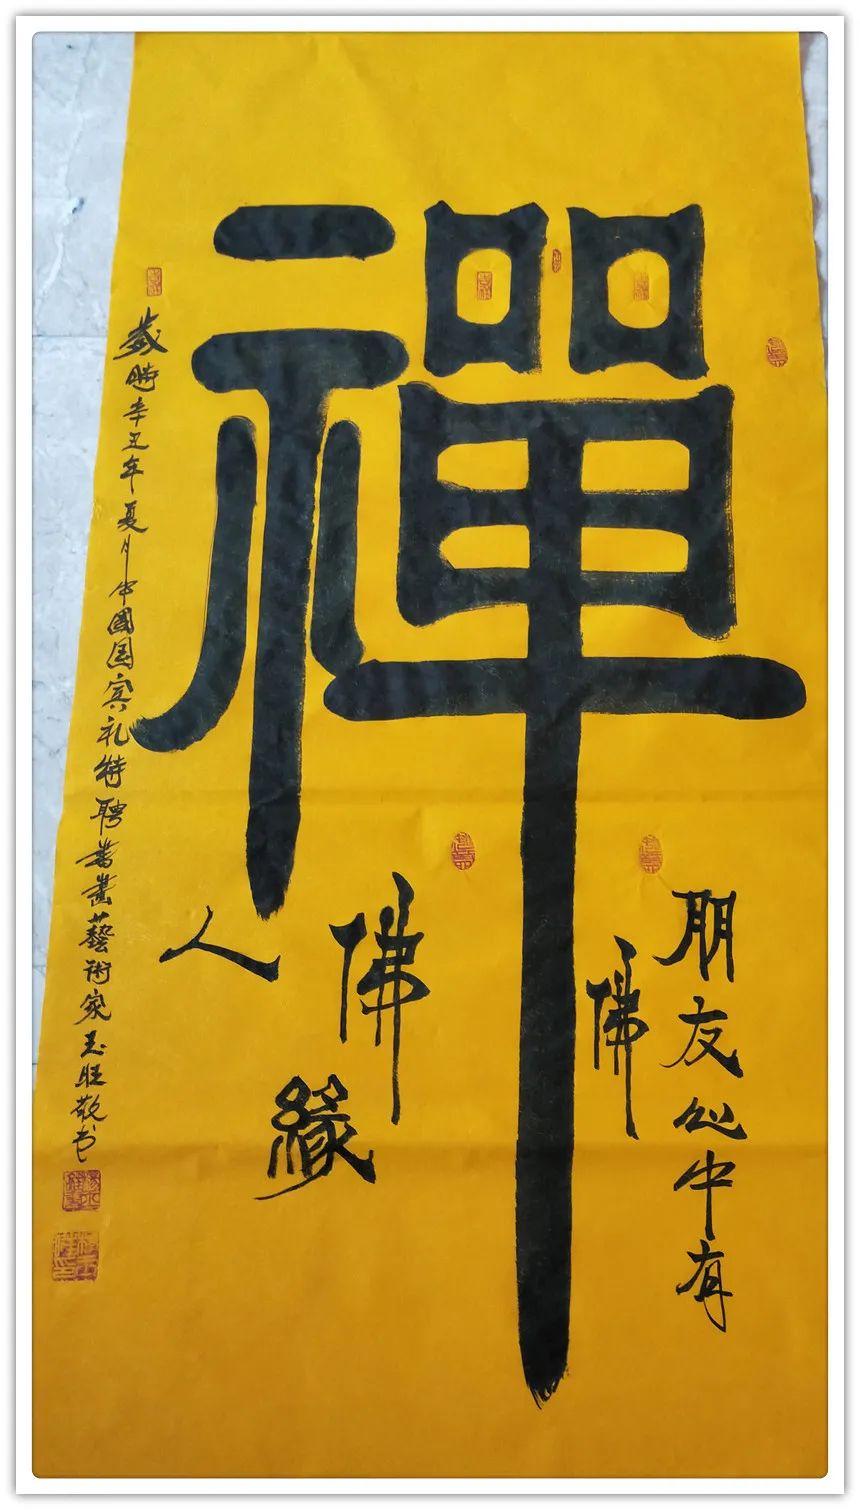 禪
朋友心中有
佛
佛緣
人
歲時辛丑年夏月中國国宾礼特聘書畫藝術家玉旺敬书